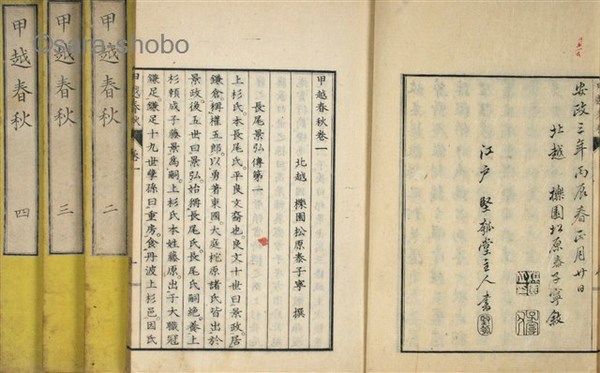 Osara shobo
安政三年丙辰春正月廿日
北越 櫟園松原泰子寧敍
江戸 堅瓠堂主人書
甲越春秋卷一
北越 櫟園松原泰子寧 撰
長尾景弘傳第一
上杉氏本長尾氏平良文裔也良文十世曰景政居
鎌倉稱權五郎以勇著東國大庭梶原諸氏皆出於
景政後五世曰景弘始稱長尾氏長尾氏嗣絶養上
杉頼成子藤景爲嗣上杉氏本姓藤原出于大職冠
鎌足鎌足十九世孽孫曰重房食丹波上杉邑因氏
甲越春秋 卷一
甲越春秋 二
甲越春秋 三
甲越春秋 四